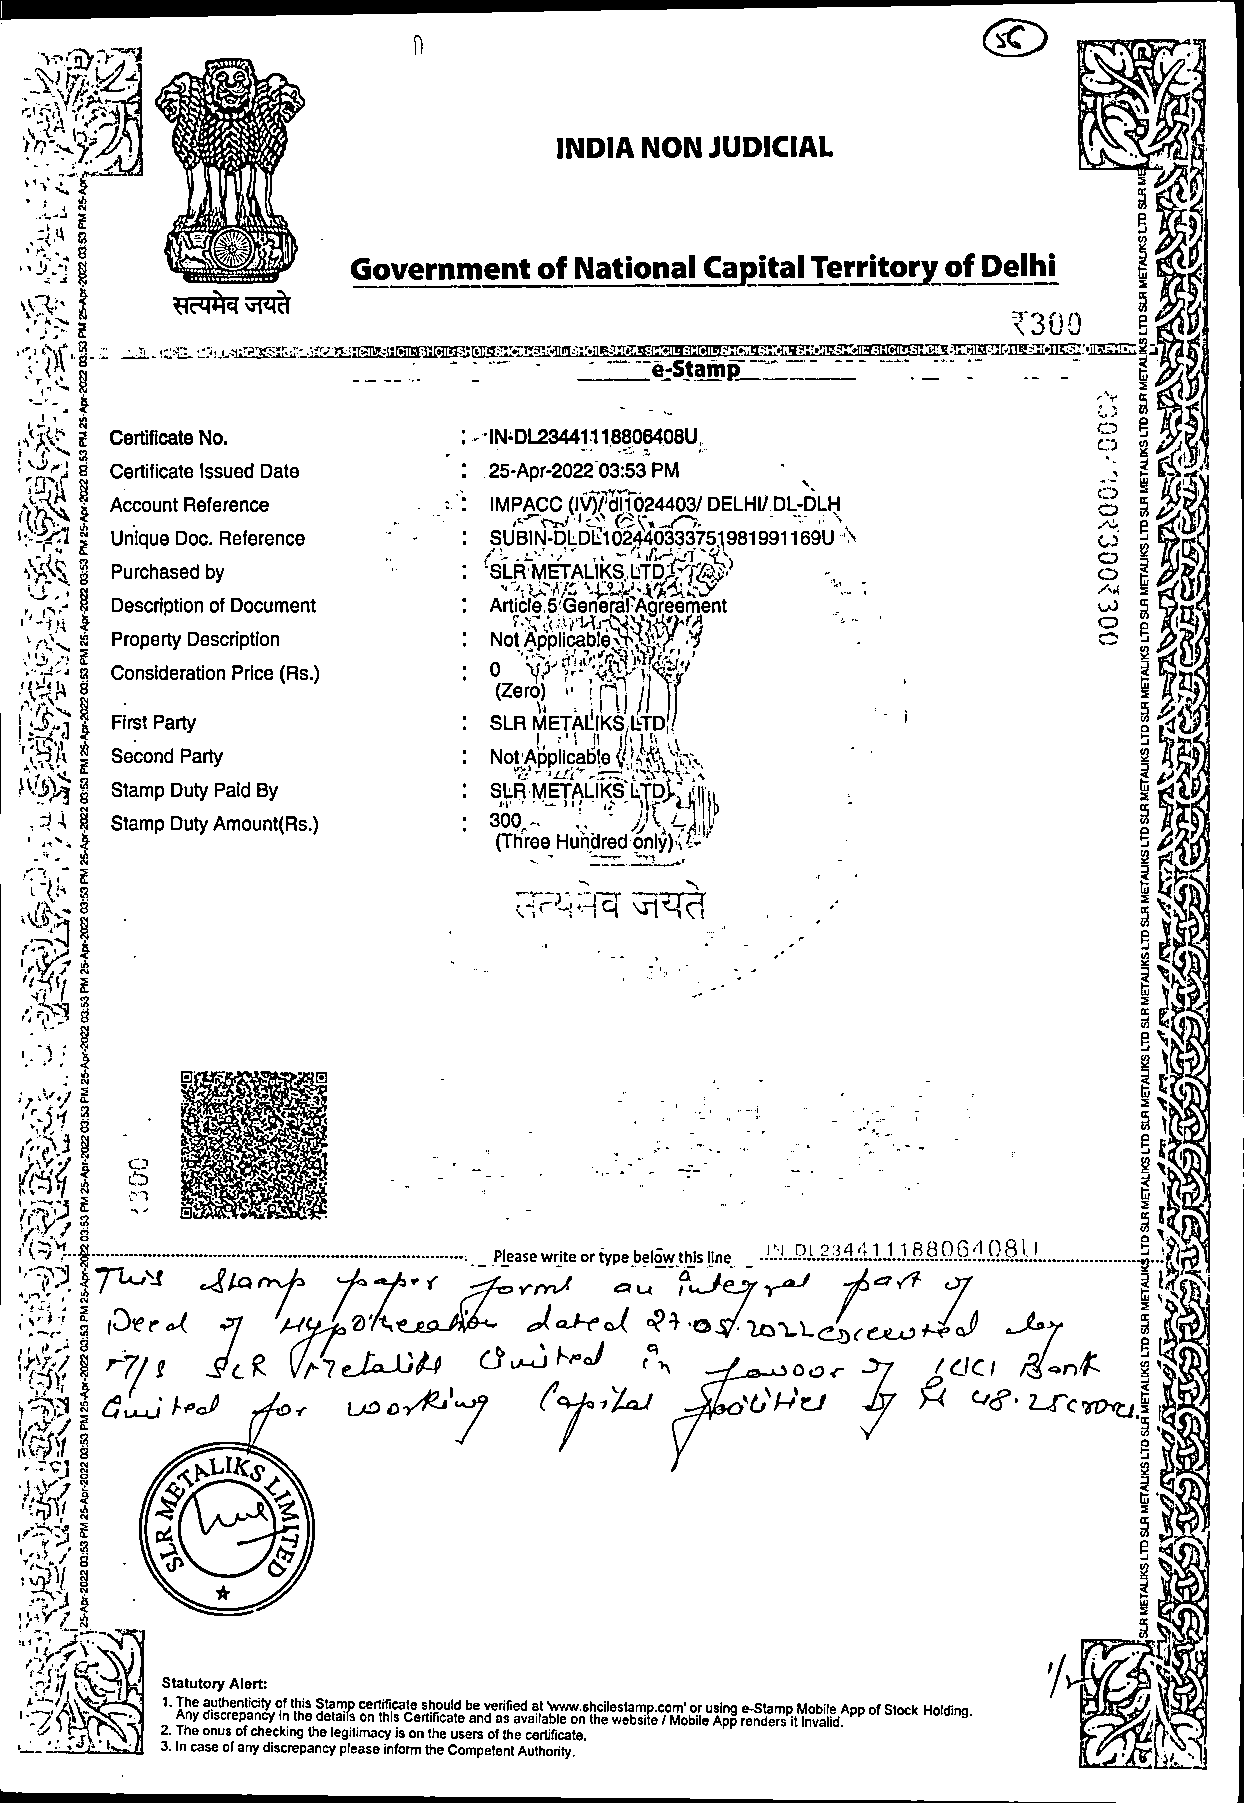 56
INDIA NON JUDICIAL
Government of National Capital Territory of Delhi
सत्यमेव जयते
₹300
e-Stamp
Certificate No. : IN-DL23441118806408U
Certificate Issued Date : 25-Apr-2022 03:53 PM
Account Reference : IMPACC (IV)/ dl1024403/ DELHI/ DL-DLH
Unique Doc. Reference : SUBIN-DLDL102440333751981991169U
Purchased by : SLR METALIKS LTD
Description of Document : Article 5 General Agreement
Property Description : Not Applicable
Consideration Price (Rs.) : 0
(Zero)
First Party : SLR METALIKS LTD
Second Party : Not Applicable
Stamp Duty Paid By : SLR METALIKS LTD
Stamp Duty Amount(Rs.) : 300
(Three Hundred only)
सत्यमेव जयते
Please write or type below this line IN-DL23441118806408U
This stamp paper forms an integral part of
Deed of Hypothecation dated 27.05.2022 executed by
M/s SLR Metaliks Limited in favour of ICICI Bank
Limited for working Capital facilities of Rs 48.25 crores.
SLR METALIKS LIMITED
1/2
Statutory Alert:
1. The authenticity of this Stamp certificate should be verified at 'www.shcilestamp.com' or using e-Stamp Mobile App of Stock Holding.
Any discrepancy in the details on this Certificate and as available on the website / Mobile App renders it invalid.
2. The onus of checking the legitimacy is on the users of the certificate.
3. In case of any discrepancy please inform the Competent Authority.